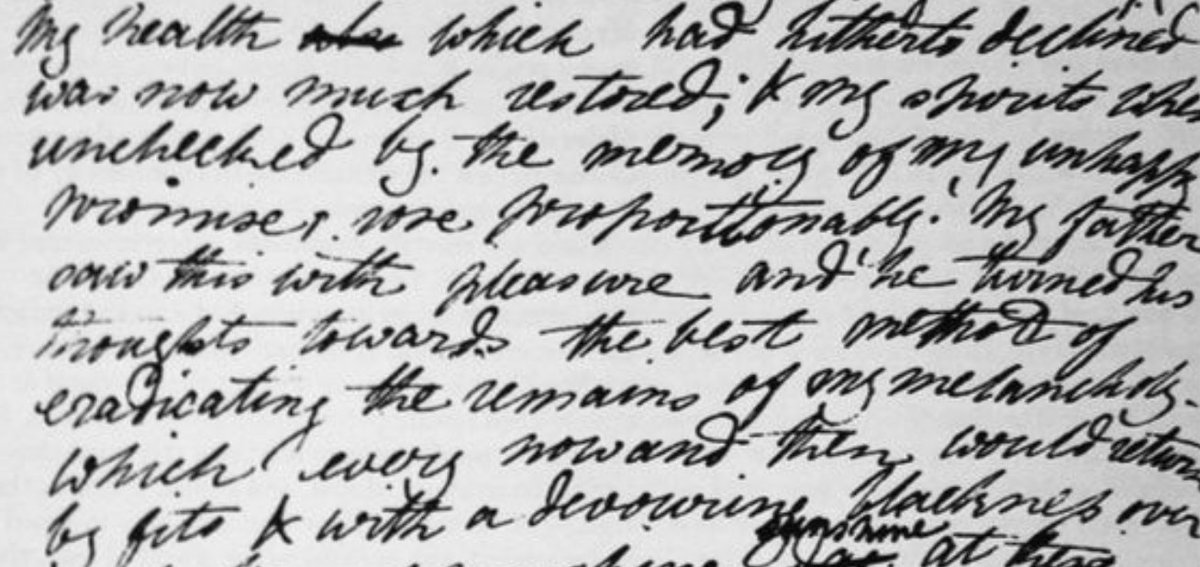 My health which had hitherto declined
was now much restored; & my spirits when
unchecked by the memory of my unhappy
promise, rose proportionably. My father
saw this with pleasure and he turned his
thoughts towards the best method of
eradicating the remains of my melancholy.
which every now and then would return
by fits & with a devouring blackness over
sunshine
at these